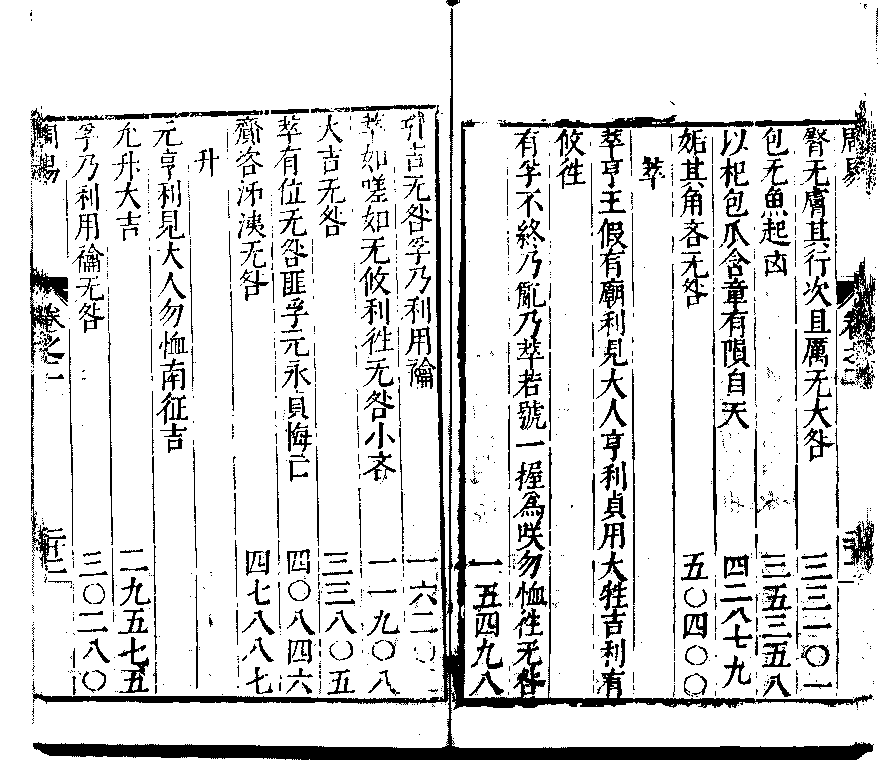 周易
卷之二
臀无膚其行次且厲无大咎 三三一〇一
包无魚起凶 三五三五八
以杞包瓜含章有隕自天 四二八七九
姤其角吝无咎 五〇四〇〇
萃
萃亨王假有廟利見大人亨利貞用大牲吉利有
攸徃
有孚不終乃亂乃萃若號一握爲咲勿恤徃无咎
一五四九八
引吉无咎孚乃利用禴 一六二〇
萃如嗟如无攸利徃无咎小吝 一一九〇八
大吉无咎 三三八〇五
萃有位无咎匪孚元永貞悔亡 四〇八四六
齎咨涕洟无咎 四七八八七
升
元亨利見大人勿恤南征吉
允升大吉 二九五七五
孚乃利用禴无咎 三〇二八〇
周易
卷之二